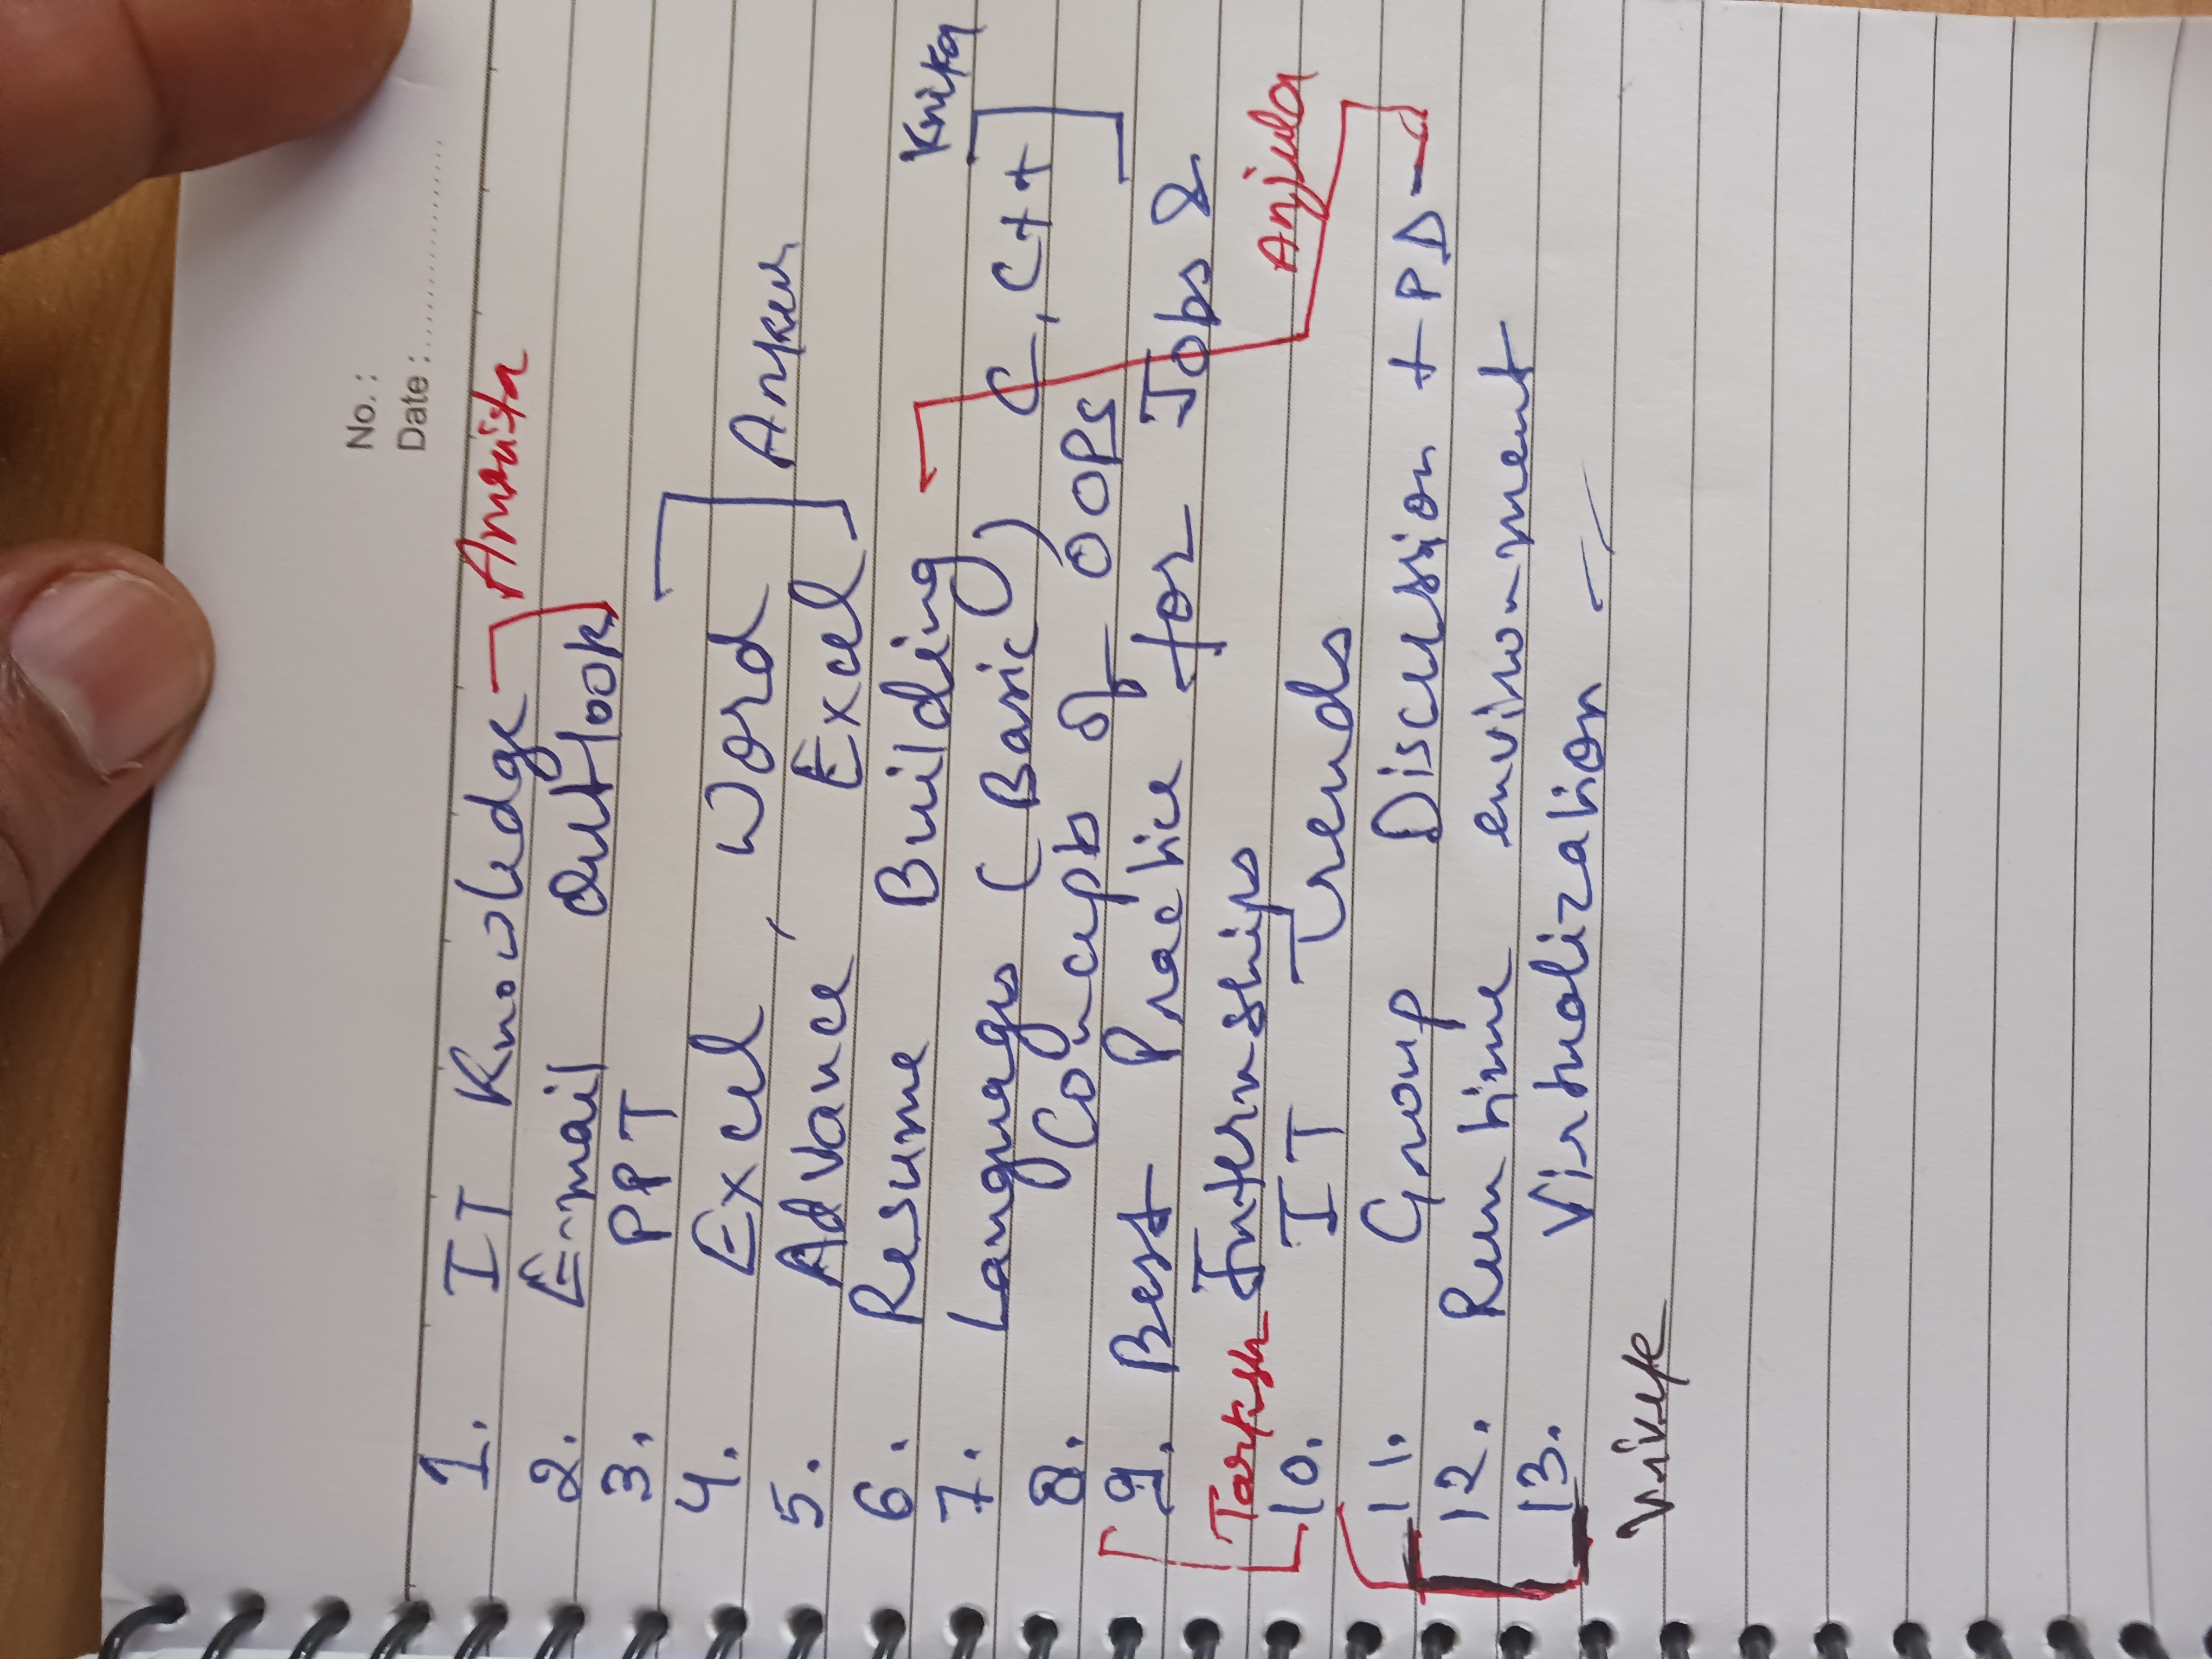 No. :
Date :
1. IT Knowledge Amrita
2. E-mail Outlook
3. PPT
4. Excel, Word Ankur
5. Advance Excel
6. Resume Building
Knika
7. Languages (Basic) C, C++
8. Concepts of OOPs
9. Best Practice for Jobs &
Tarkesh Internships
Anjula
10. IT Trends
11. Group Discussion + PD
12. Runtime environment
13. Virtualization
Vivek